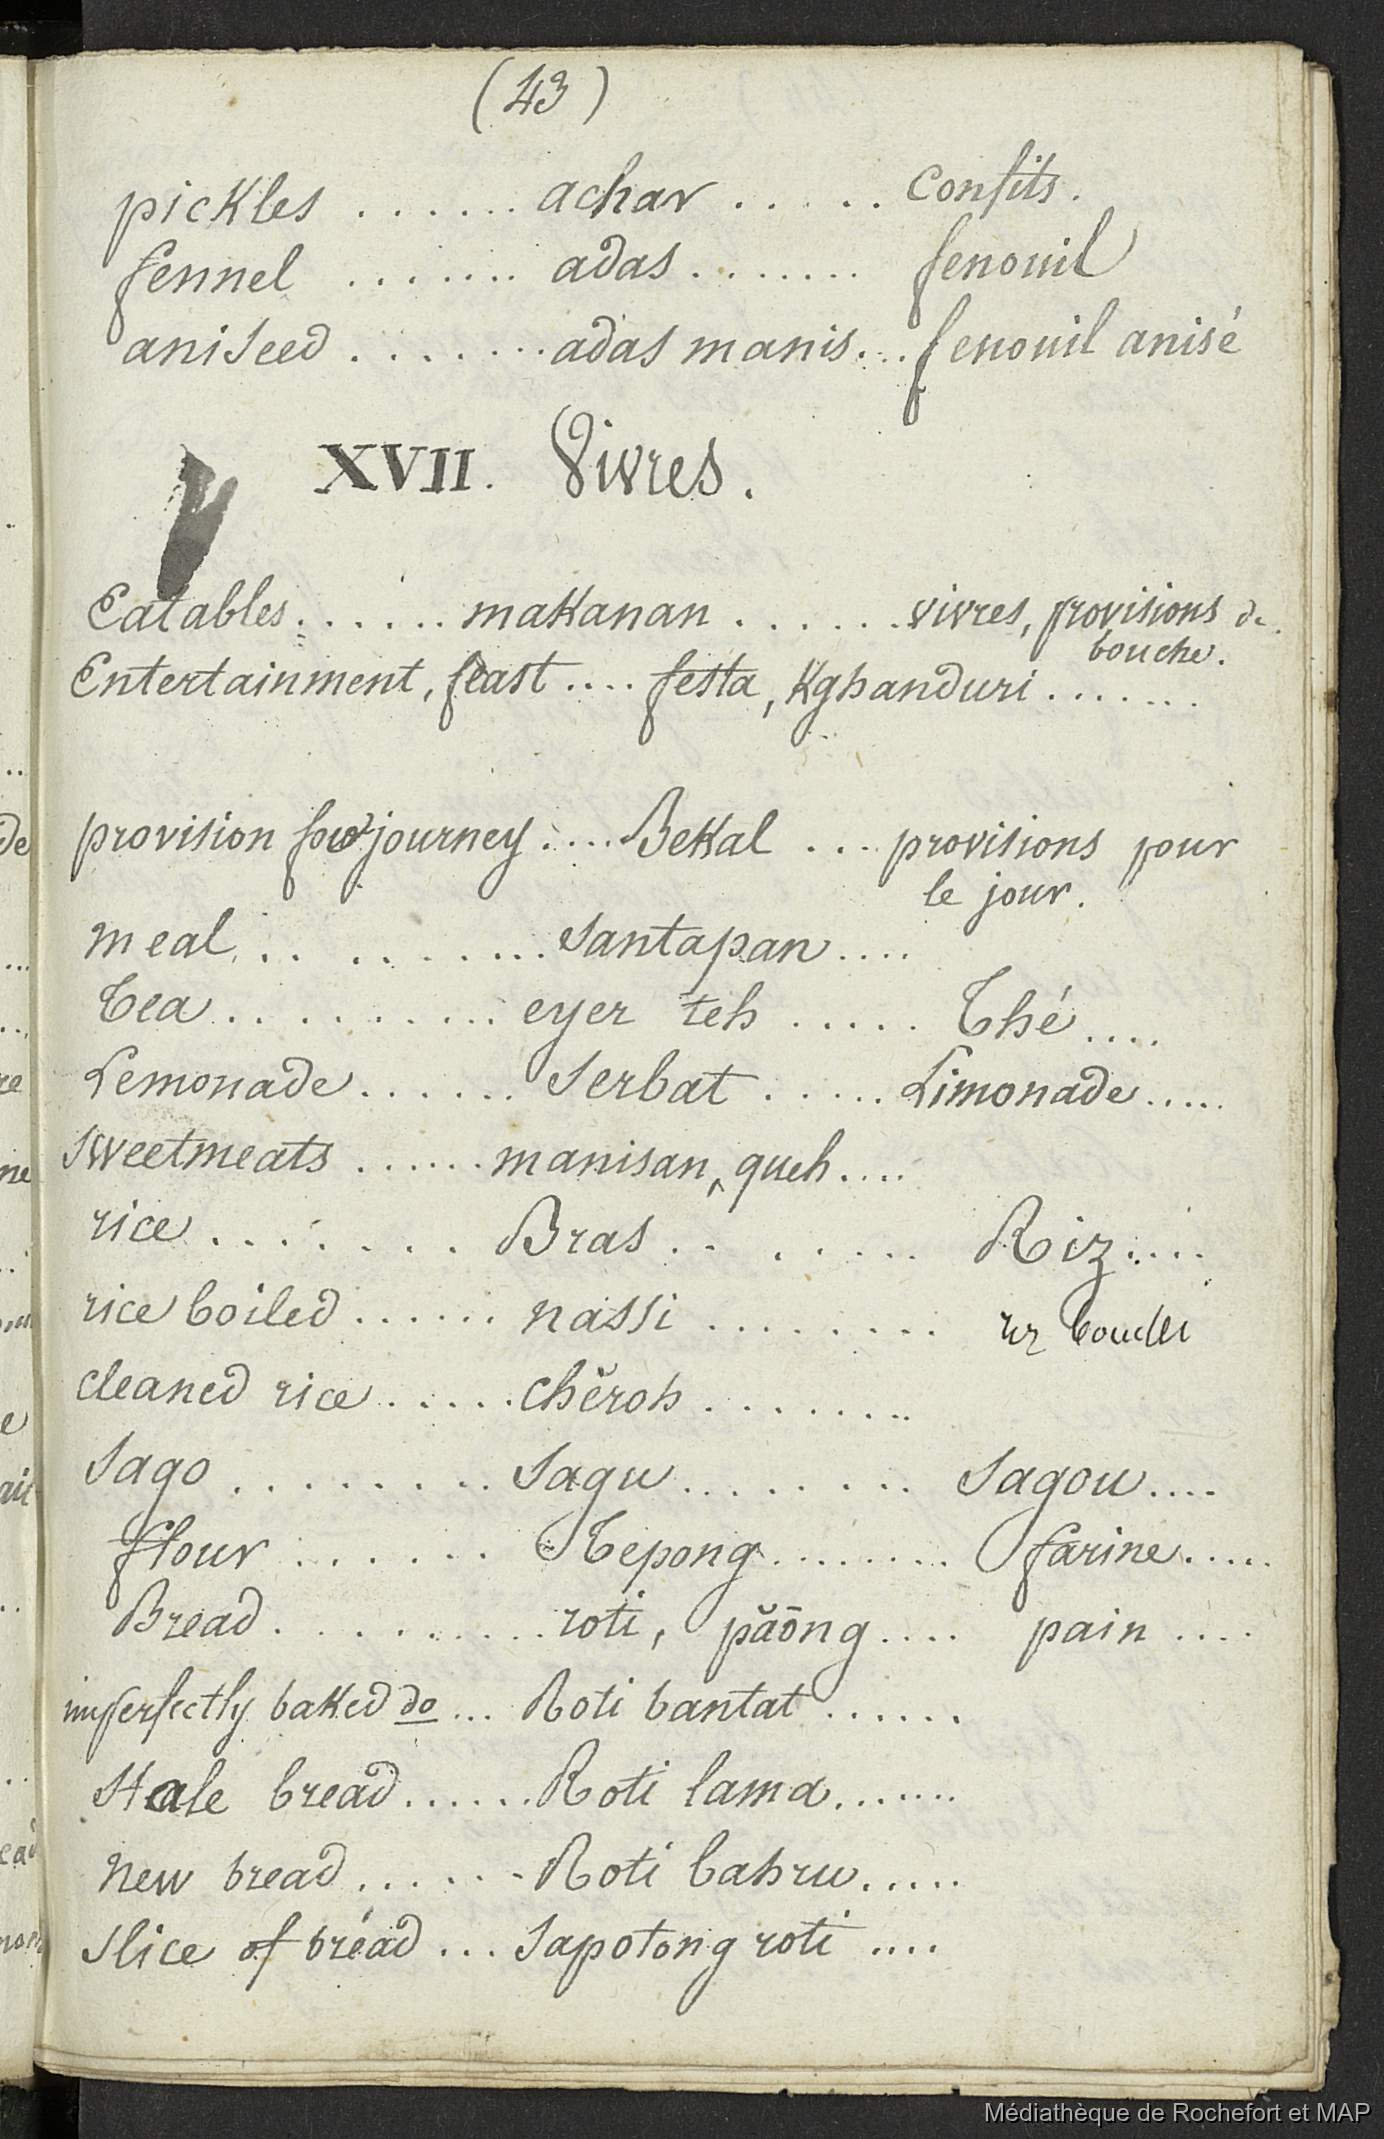 (43)
pickles ....... achar ..... confits.
fennel ....... adas ........ fenouil
aniseed ........ adas manis.... fenouil anisé
XVII. Vivres.
Eatables ...... makanan ...... vivres, provisions de
bouche.
Entertainment, feast .... festa, Kghanduri .......
provision for journey .... Bekal ... provisions pour
le jour.
meal ......... santapan ....
Tea .......... eyer teh ..... Thé ....
Lemonade ....... Serbat ..... Limonade .....
Sweetmeats ...... manisan, queh ....
rice ....... Bras ...... Riz ....
rice boiled ...... nassi ........ riz
cleaned rice ..... chĕroh ........
Sago ........ Sagu ........ Sagou ....
flour ...... Tepong ........ farine .....
Bread .......... roti, păōng .... pain ....
imperfectly baked do ... Roti bantat ......
Stale bread ...... Roti lama .......
New bread ...... Roti bahru .....
Slice of bread ... Sapotong roti ....
Médiathèque de Rochefort et MAP